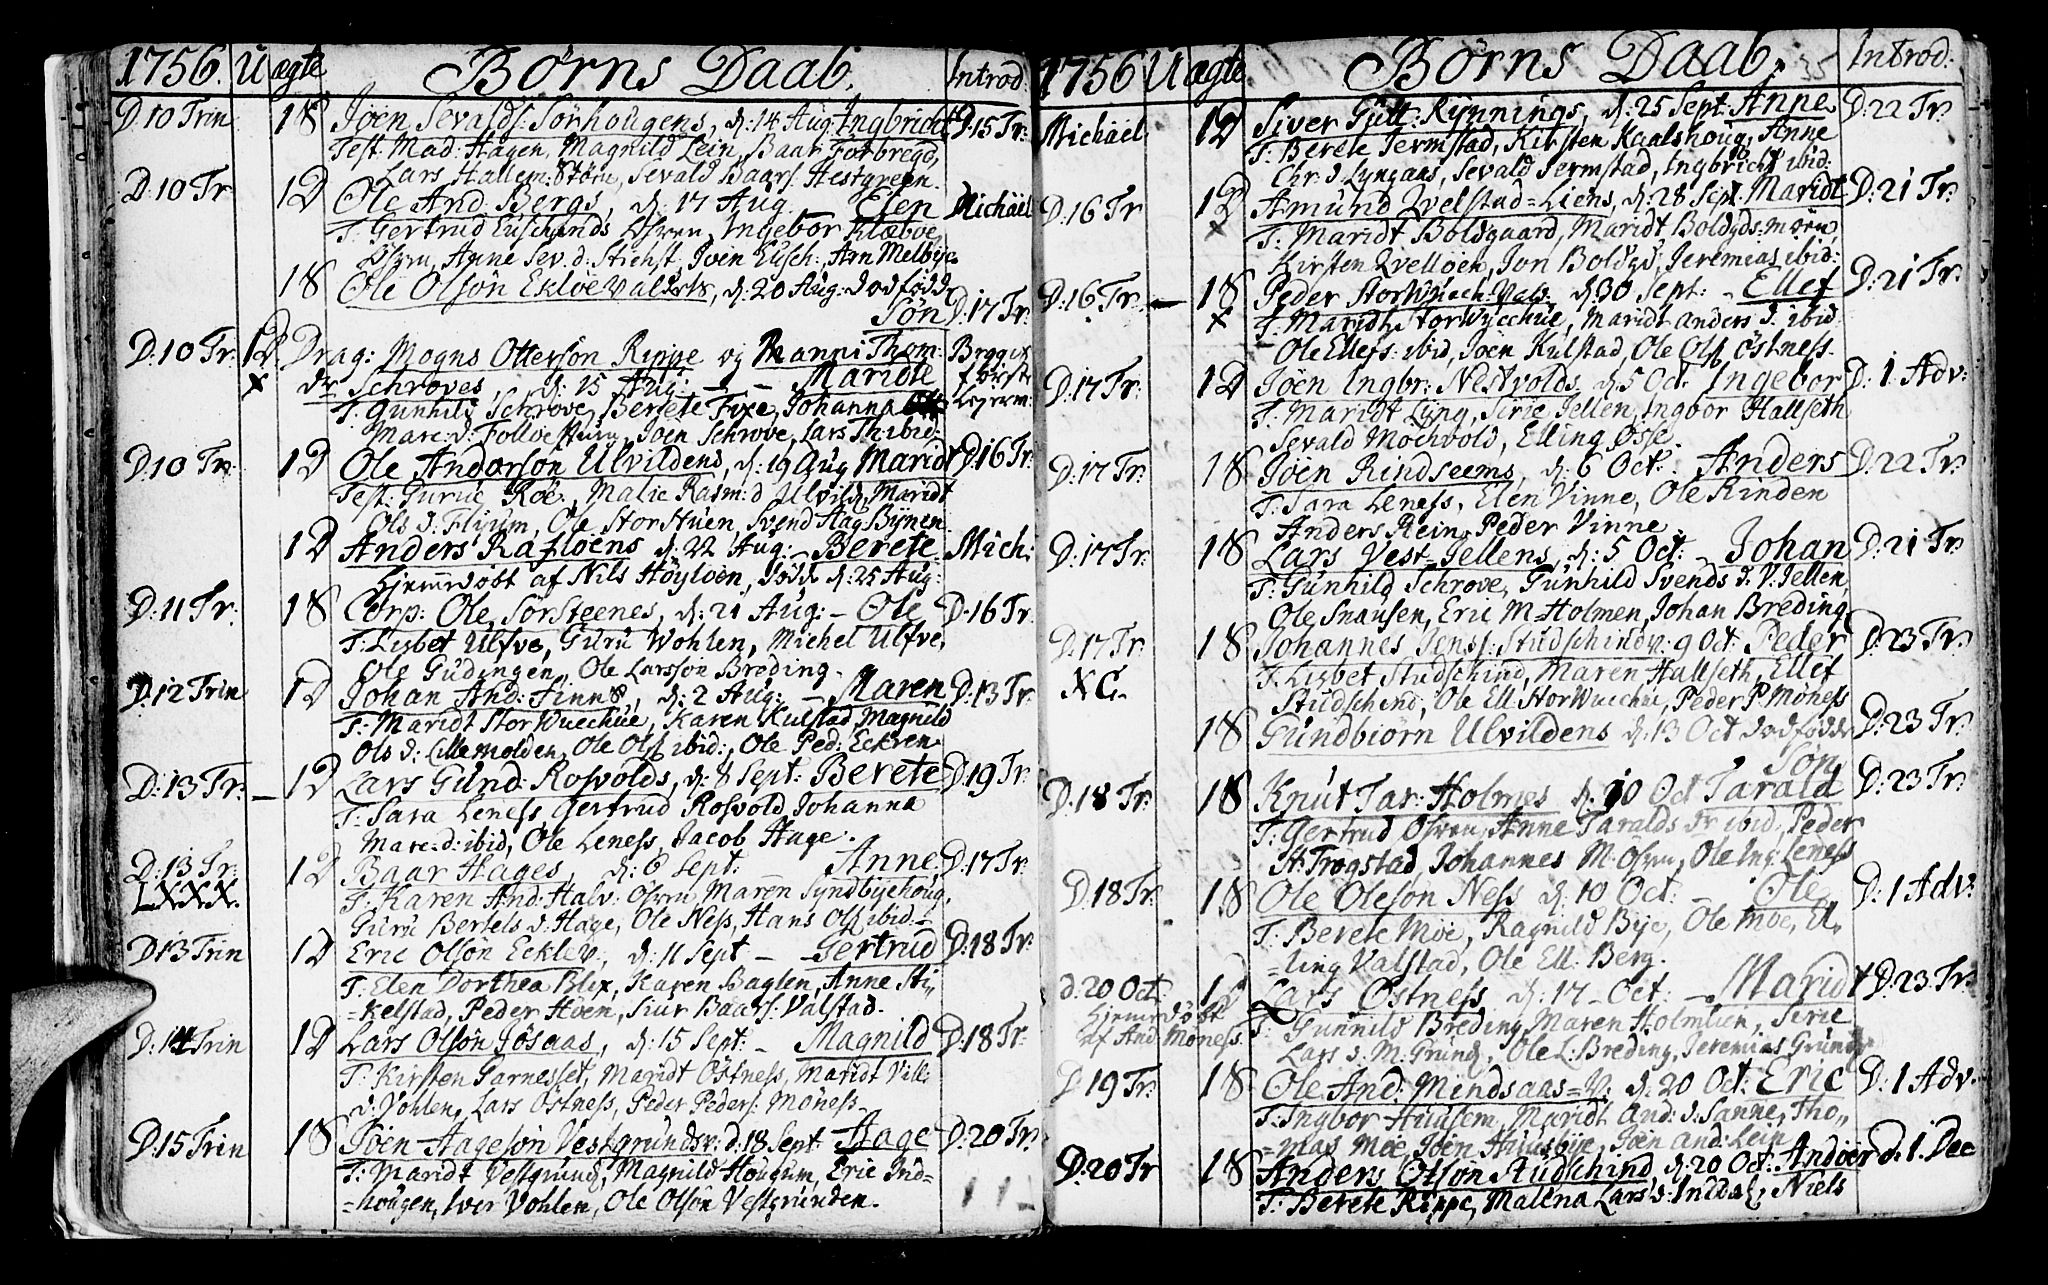 1756. Uægte Børns Daab. Introd:
D. 10 Trin 18 Joen Sevalds: Sørhougens, d: 14 Aug: Ingbricht D. 15 Tr:
Test: Mad: Hagen, Magnild Lein, Baar Forbregd,
Lars Hallem: Støru, Sevald Baars: Hestgreen.
D. 10 Tr 12 Ole And: Bergs, d: 17 Aug. Elen Michäel
T: Gertrud Ovren, Ingebor Klæbve
Anne Sev: d: Stichst: Joen Am Melbye
18 Ole Olsøn d: 20 Aug: dødfødde
Søn D. 17 Tr:
D. 10 Tr: 12 Drag: Mogns Otterson Rippe og Thom:
x dr Schroves d: 15 Aug: - - Maridt
T: Gunhild Schrove, Berete Fixe, Johanna
Marc: d: Joen Schrove, Lars Th: ibid:
D. 10 Tr: 12 Ole Anderson Ulvildens, d: 19 Aug Maridt D. 16 Tr:
Test: Guruc Röe, Malie Rasm: d Ulvild, Maridt
Ols d: Flyum, Ole Storstuen, Svend Aag: Bynen
12 Anders Rafloens d: 22 Aug: - Berete Mich:
Hjemmedøbt af Nils Höyloen, døde d: 25 Aug:
D: 11 Tr: 18 Corp: Ole Sørsteenes, d: 21 Aug: - Ole D. 16 Tr
T: Lisbet Ulfve, Guru Wohlen, Michel Ulfve,
Ole Gudingen, Ole Larsson Breding.
D. 12 Trin 12 Johan And: Finnes, d: 2 Aug: - Maren D. 13 Tr
T: Maridt Stor Wuechue, Karen Kulstad, Magnild
Ols d: Lillemolden, Ole Ols: ibid:, Ole Ped: Eckren
D: 13 Tr: 12 Lars Gund: Rosvolds, d: 8 Sept: Berete D. 19 Tr:
T: Sara Leness, Gertrud Rosvold, Johanna
Marc: d: ibid, Ole Leness, Jacob Hage.
D. 13 Tr: 12 Baar Hages, d: 6 Sept: Anne D. 17 Tr:
LXXX. T: Karen And: Halv: Ovren, Maren Syndbyehoug,
Guru Bertels d: Hage, Ole Ness, Hans Ols: ibid:
D 13 Trin 12 Eric Olsøn Eckler, d: 11 Sept - Gertrud D: 18 Tr:
T: Elen Dorthea Blix, Karen Baglen, Anne Sti,,
=kelstad, Peder Höen, Siur Baars: Valstad.
D: 14 Trin 12 Lars Olsøn Jøsaas, d: 15 Sept: - Magnild D: 18 Tr:
T: Kirsten Garnesset, Maridt Östness, Maridt Vill:
d: Vohlen, Lars Östness, Peder Peders: Moness.
D. 15 Trin 18 Joen Aageson Vestgrundsv: d: 18 Sept: Aage D: 20 Tr:
T: Maridt Vestgrund, Magnild Hougum, Eric Ind=
=hougen, Iver Vohlen, Ole Olsøn Vestgrunden.
1756 Uægte Børns Daab. 35 Introd:
Michäel 12 Siver Gutt: Rynnings, d: 25 Sept: Anne D: 22 Tr:
T: Berete Jermstad, Kirsten Kaalshoug, Anne
Chr: d Lyngaas, Sevald Jermstad, Ingbricht ibid:
D: 16 Tr 12 Amund Qvelstad=Liens, d: 28 Sept. Maridt D: 21 Tr:
x T: Maridt Boldgaard, Maridt Boldgds:moen,
Kirsten Qvelloen, Jon Boldgd, Jeremias ibid:
D: 16 Tr: 18 Peder StorWuech: Vals: d 30 Sept: - Ellef D: 21 Tr:
x T: Maridt StorWuechue, Maridt Anders d. ibid:
Ole Ellefs: ibid, Joen Kulstad, Ole Ols: Östness.
D: 17 Tr: 12 Joen Ingbr: Nestvolds, d: 5 Oct. Ingebor D: 1. Adv:
T: Maridt Lyng, Sirie Jellen, Ingbor Hallseth
Sevald Mochvold, Elling Össe.
D: 17 Tr: 18 Joen Rindseems, d: 6 Oct: - Anders D: 22 Tr:
T: Sara Leness, Elen Vinne, Ole Rinden
Anders Rein, Peder Vinne.
D: 17 Tr: 18 Lars Vest-Jellens, d: 5 Oct: - Johan D: 21 Tr:
T: Gunhild Schrove, Gunhild Svends d. V: Jellen,
Ole Snausen, Eric M-Holmen, Johan Breding,
D: 17 Tr 18 Johannes Jens: Studschindv: 9 Oct: Peder D: 23 Tr:
XC. T: Lisbet Studschind, Maren Hallseth, Ellef
Studschind, Ole Ell: StorWuechue, Peder P: Moness
18 Gundbiørn Ulvildens d: 13 Oct dødfødde D: 23 Tr:
Søn
D: 18 Tr: 18 Knut Tar: Holmes d: 10 Oct Tarald D: 23 Tr:
T: Gertrud Ovren, Anne Taralds dr ibid, Peder
A: Trogstad, Johannes M: Ovren, Ole Ing: Leness
D: 18 Tr: 18 Ole Oleson Ness d: 10 Oct: - Ole D: 1 Adv:
T: Berete Möe, Ragnild Bye, Ole Moe, El,,
=ling Valstad, Ole Ell: Berg.
d. 20 Oct: 12 Lars Östness d: 17 Oct: - Maridt D: 23 Tr:
Hjemmedøbt T: Gunnild Breding, Maren Holmlien, Sirie
af And: Möness. Lars d: M: Grund, Ole L: Breding, Jeremias Grund
D 19 Tr: 18 Ole And: Mindsaas=v. d: 20 Oct: Eric D: 1 Adv.
T: Ingbor Huusem, Maridt And: d: Sanne, Tho,,
=mas Moe, Joen Huusbye, Joen And: Lein
D. 20 Tr 18 Anders Olson Studschind d: 20 Oct: Andöer d: 1. Dec
T: Berete Rippe, Malena Lars d: Inddal, Niels